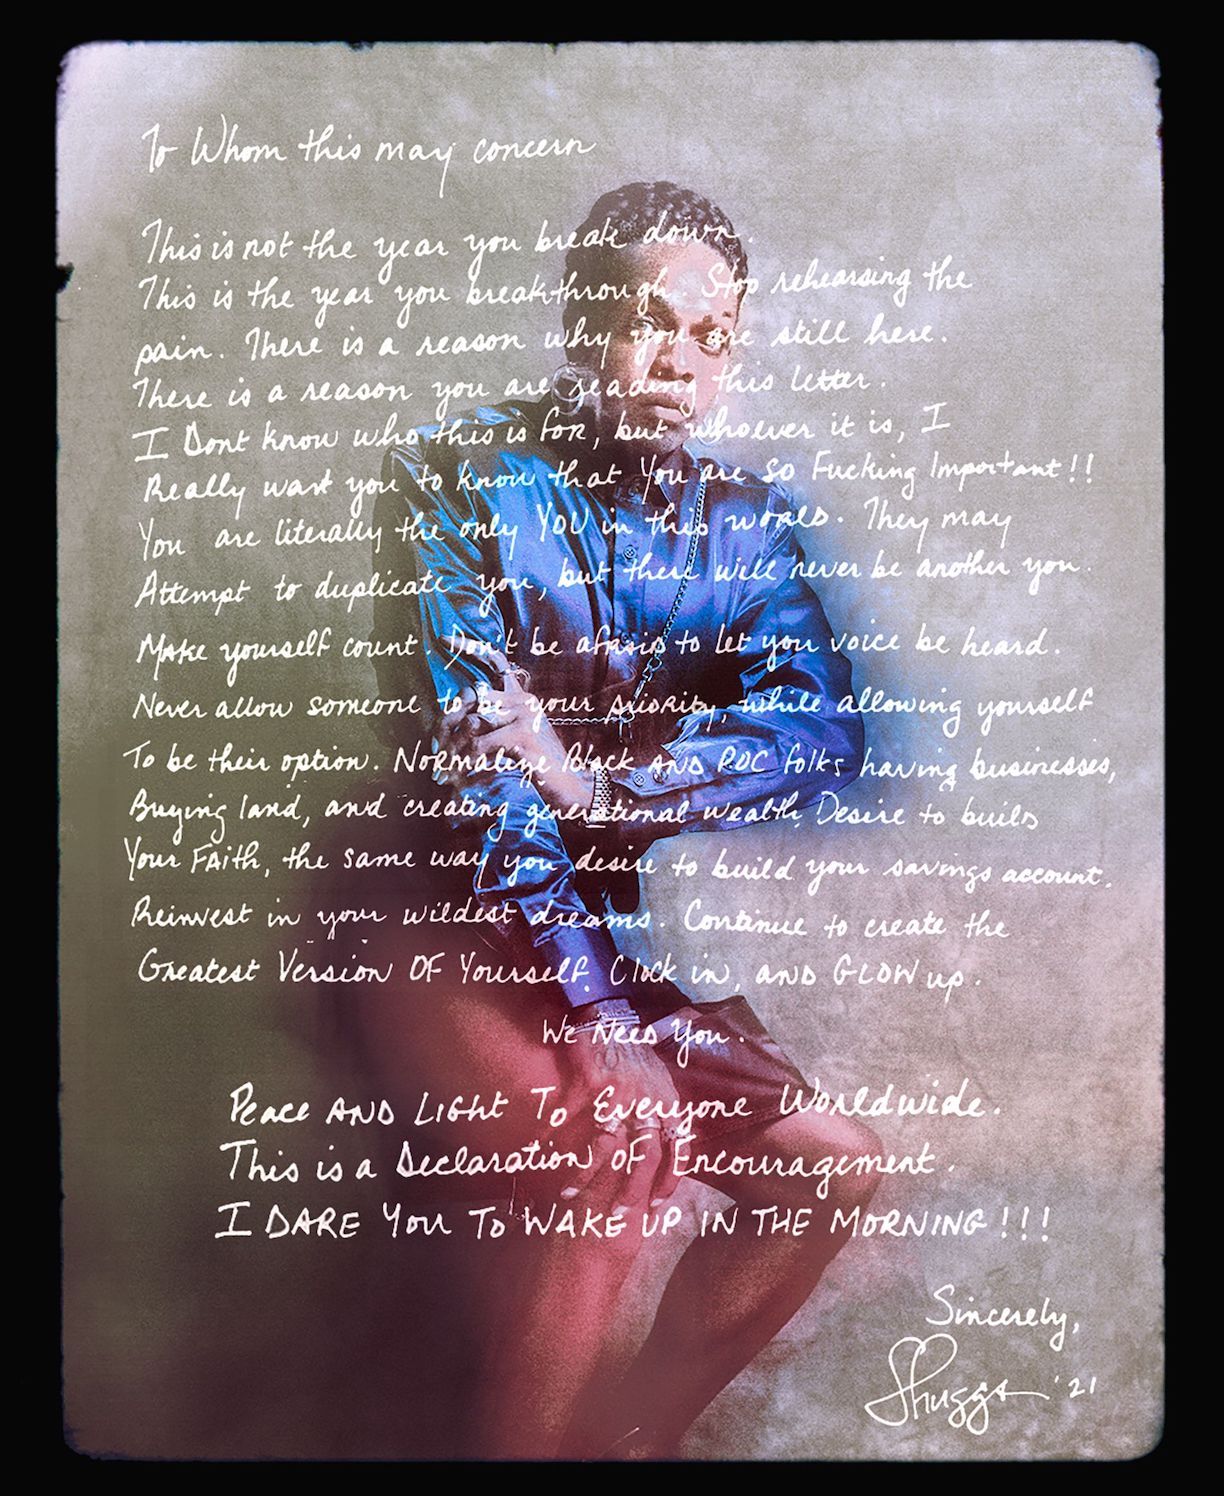 To Whom this may concern
This is not the year you break down.
This is the year you breakthrough. Stop rehearsing the
pain. There is a reason why you are still here.
There is a reason you are reading this letter.
I Dont know who this is for, but whoever it is, I
Really want you to know that You are so Fucking Important!!
You are literally the only YOU in this world. They may
Attempt to duplicate you, but there will never be another you.
Make yourself count. Don't be afraid to let you voice be heard.
Never allow someone to be your priority, while allowing yourself
To be their option. Normalize Black AND POC folks having businesses,
Buying land, and creating generational wealth. Desire to build
Your Faith, the same way you desire to build your savings account.
Reinvest in your wildest dreams. Continue to create the
Greatest Version OF Yourself. Clock in, AND GLOW up.
We Need You.
Peace AND Light To Everyone Worldwide.
This is a Declaration OF Encouragement.
I DARE You To WAKE UP IN THE MORNING!!!
Sincerely,
Shuggs '21